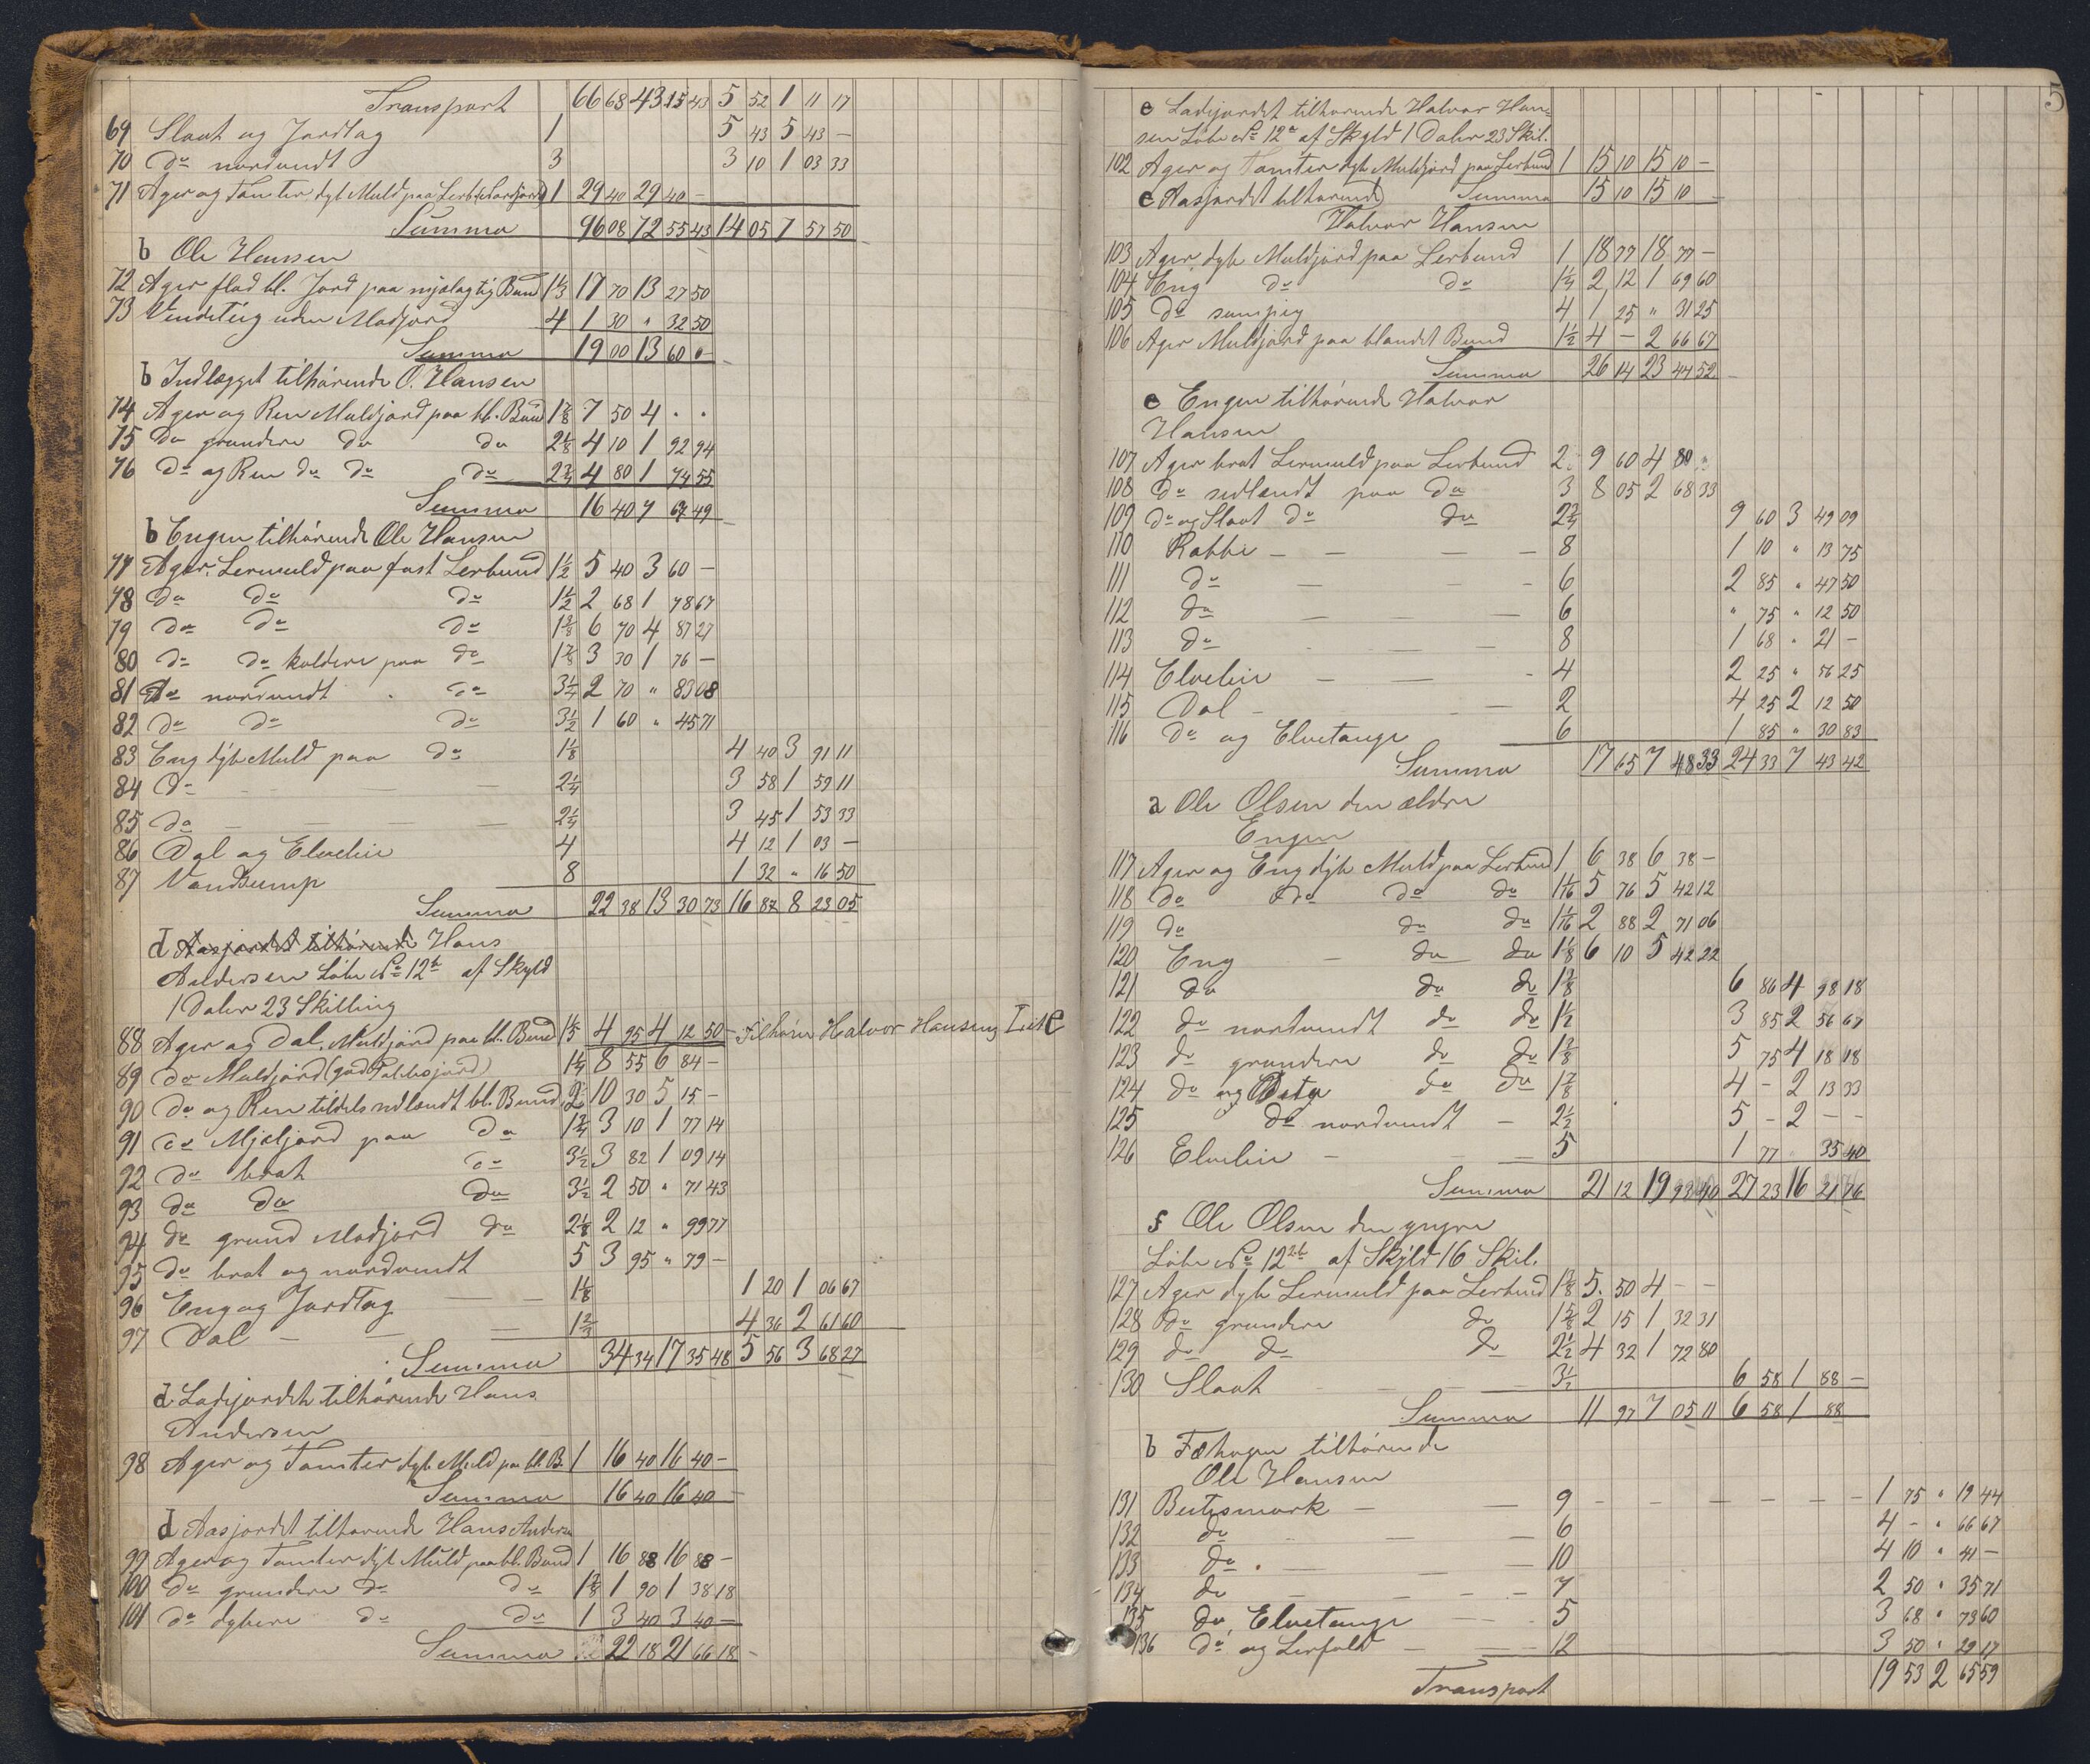 Transport 66 68 43 15 43 5 52 1 11 17
69 Slaat og Jordlag 1 5 43 5 43 –
70 do nordvendt 3 3 10 1 03 33
71 Ager og Tomter dyb Muld paa Lerb. 1 29 40 29 40 –
Summa 96 08 72 55 43 14 05 7 57 50
b Ole Hansen
72 Ager flad bl. Jord paa mjælagtig Bund 1 1/3 17 70 13 27 50
73 Vendeteig uden Madjord 4 1 30 " 32 50
Summa 19 00 13 60 0
b Indlægget tilhørende O. Hansen
74 Ager og Ren Muldjord paa bl. Bund 1 7/8 7 50 4 . .
75 do grundere do do 2 1/8 4 10 1 92 94
76 do og Ren do do do 2 3/4 4 80 1 74 55
Summa 16 40 7 67 49
b Engen tilhørende Ole Hansen
77 Ager. Lermuld paa fast Lerbund 1 1/2 5 40 3 60 –
78 do do do 1 1/2 2 68 1 78 67
79 do do do 1 3/8 6 70 4 87 27
80 do do koldere paa do 1 7/8 3 30 1 76 –
81 do nordvendt . do 3 1/4 2 70 " 83 08
82 do do do 3 1/2 1 60 " 45 71
83 Eng dyb Muld paa do 1 1/8 4 40 3 91 11
84 do – – 2 1/4 3 58 1 59 11
85 do – – – – 2 1/4 3 45 1 53 33
86 Dal og Elvelie 4 4 12 1 03 –
87 Vandsump 8 1 32 " 16 50
Summa 22 38 13 30 73 16 87 8 23 05
d Aasjordet tilhørende Hans
Andersen Løbe No 12b af Skyld
1 Daler 23 Skilling
88 Ager og Dal. Muldjord paa bl. Bund 1 1/5 4 95 4 12 50 – Tilhører Halvor Hansens Lit e
89 do Muldjord (god Potetesjord) 1 1/4 8 55 6 84 –
90 do og Ren tildels sidlændt bl. Bund 2 10 30 5 15 –
91 do Mjæljord paa do 1 3/4 3 10 1 77 14
92 do brat do 3 1/2 3 82 1 09 14
93 do do do 3 1/2 2 50 " 71 43
94 do grund Madjord do 2 1/8 2 12 " 99 77
95 do brat og nordvendt 5 3 95 " 79 –
96 Eng og Jordlag – – 1 1/8 1 20 1 06 67
97 Dal – – – 1 2/3 4 36 2 61 60
Summa 34 34 17 35 48 5 56 3 68 27
d Ladejordet tilhørende Hans
Andersen
98 Ager og Tomter dyb Muld paa bl. B. 1 16 40 16 40 –
Summa 16 40 16 40 –
d Aasjordet tilhørende Hans Andersen
99 Ager og Tomter dyb Muld paa bl. Bund 1 16 88 16 88 –
100 do grundere do do 1 3/8 1 90 1 38 18
101 do dybere do do 1 3 40 3 40 –
Summa 22 18 21 66 18 –
5
e Ladejordet tilhørende Halvor Han=
sen Løbe No 12a af Skyld 1 Daler 23 Skil.
102 Ager og Tomter dyb Muldjord paa Lerbund 1 15 10 15 10 –
Summa 15 10 15 10 –
e Aasjordet tilhørende
Halvor Hansen
103 Ager dyb Muldjord paa Lerbund 1 18 77 18 77 –
104 Eng do do 1 1/4 2 12 1 69 60
105 do sumpig 4 1 25 " 31 25
106 Ager Muldjord paa blandet Bund 1 1/2 4 – 2 66 67
Summa 26 14 23 44 52
e Engen tilhørende Halvor
Hansen
107 Ager brat Lermuld paa Lerbund 2 9 60 4 80 "
108 do sidlændt paa do 3 8 05 2 68 33
109 do og Slaat do do 2 3/4 9 60 3 49 09
110 Rabbe – – – – 8 1 10 " 13 75
111 do – – – 6 2 85 " 47 50
112 do – – – 6 " 75 " 12 50
113 do – – – 8 1 68 " 21 –
114 Elvelie – – – 4 2 25 " 56 25
115 Dal – – – 2 4 25 2 12 50
116 do og Elvetange 6 1 85 " 30 83
Summa 17 65 7 48 33 24 33 7 43 42
a Ole Olsen den ældre
Engen
117 Ager og Eng dyb Muld paa Lerbund 1 6 38 6 38 –
118 do do do do 1 1/16 5 76 5 42 12
119 do do do 1 1/16 2 88 2 71 06
120 Eng – do do 1 1/8 6 10 5 42 22
121 do do do 1 3/8 6 86 4 98 18
122 do nordvendt do do 1 1/2 3 85 2 56 67
123 do grundere do do 1 3/8 5 75 4 18 18
124 do og do do 1 7/8 4 – 2 13 33
125 do nordvendt – 2 1/2 5 – 2 – –
126 Elvelie – – 5 1 77 " 35 40
Summa 21 12 19 93 40 27 23 16 21 76
f Ole Olsen den yngre
Løbe No 12 2b af Skyld 16 Skil.
127 Ager dyb Lermuld paa Lerbund 1 3/8 5 50 4 – –
128 do grundere do 1 5/8 2 15 1 32 31
129 do do do 2 1/2 4 32 1 72 80
130 Slaat 3 1/2 6 58 1 88 –
Summa 11 97 7 05 11 6 58 1 88
b Fæhagen tilhørende
Ole Hansen
131 Beitesmark – – 9 – – – – – – 1 75 " 19 44
132 do – – 6 4 – " 66 67
133 do . – – 10 4 10 " 41 –
134 do – – – 7 2 50 " 35 71
135 do, Elvetange – – 5 3 68 " 73 60
136 do og Lerfald – – 12 3 50 " 29 17
Transport 19 53 2 65 59